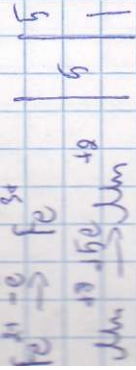 Fe²⁺ -e → Fe³⁺ | | 5
5
Mn⁺⁷ +5e → Mn⁺² | | 1